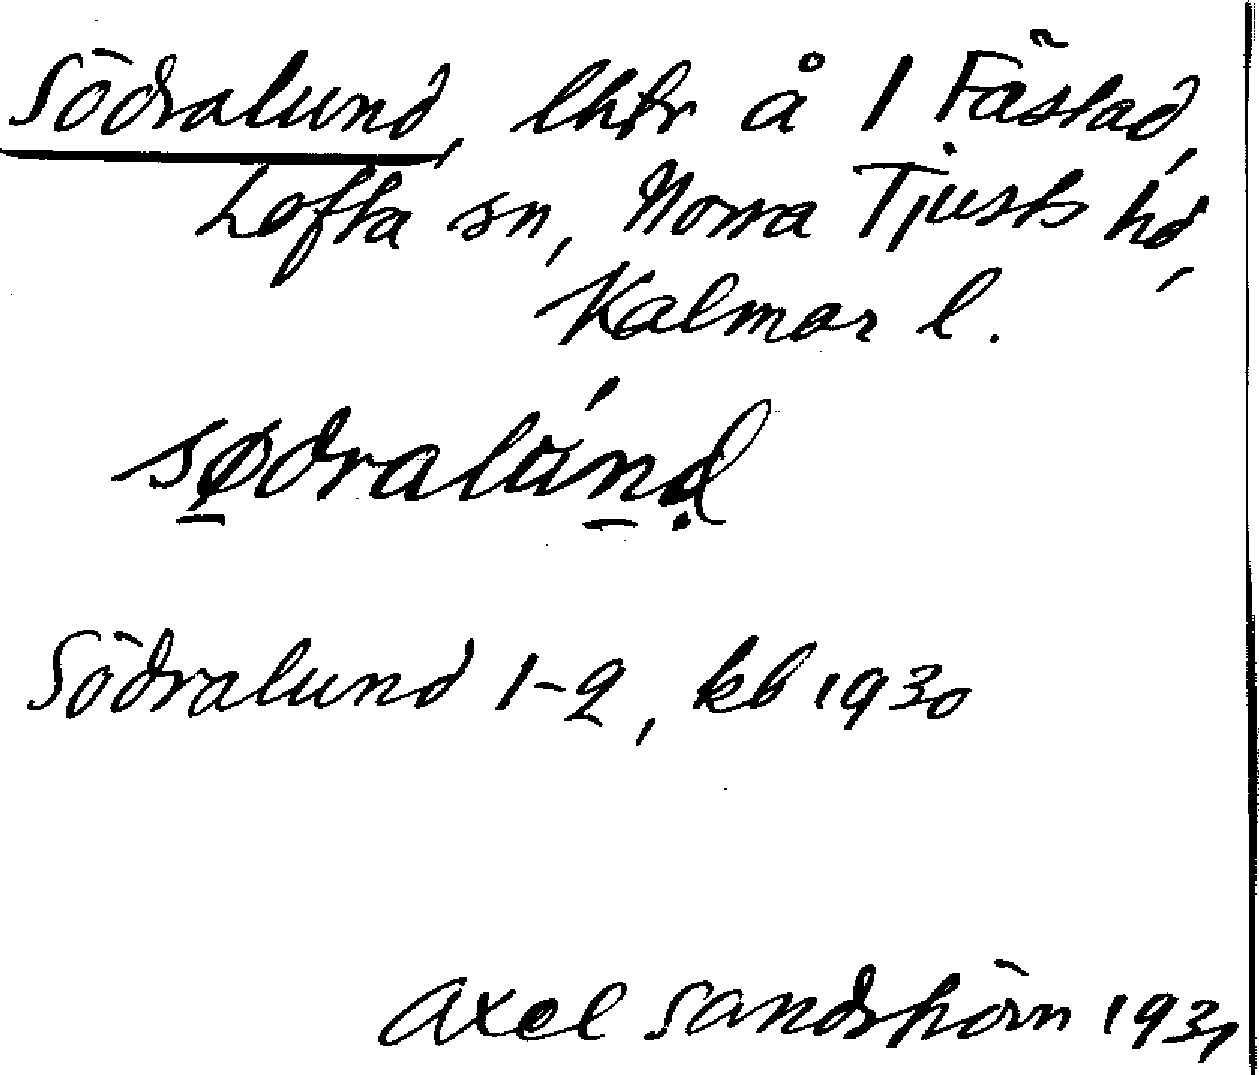 Södralund, lhtr å 1 Fästad,
Lofta sn, Norra Tjusts hd,
Kalmar l.
sødralúnd
Södralund 1-2, kb 1930
Axel Sandshörn 1931